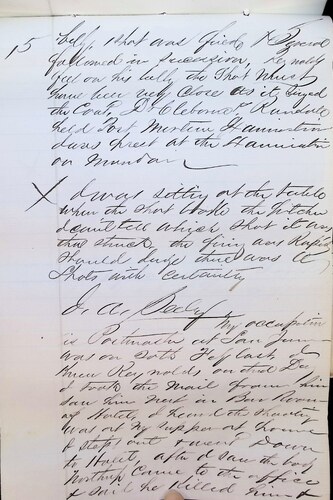 5
belly, shot was fired, & several
followed in succession, Reynolds
fell on his belly, the shot must
have been very close as it singed
the Coat, Dr Cleborne, Randall
held Post Mortem Examination
was prest at the Examination
on Monday
X I was sitting at the table
when the shot broke the pitcher
I cant tell which shot it was
that struck, the firing was rapid
Should judge there was
shots with certainty
J. A.
My occupation
is Postmaster at San Juan
was on 20th Feb last
Knew Reynolds on that Day
I took the Mail from him
saw him next in Bar Room
of Hotel, I heard the shooting
was at my supper at home
I stept out & went down
to Hotel, after I saw the body
Northup Came to the office
& said he killed him &